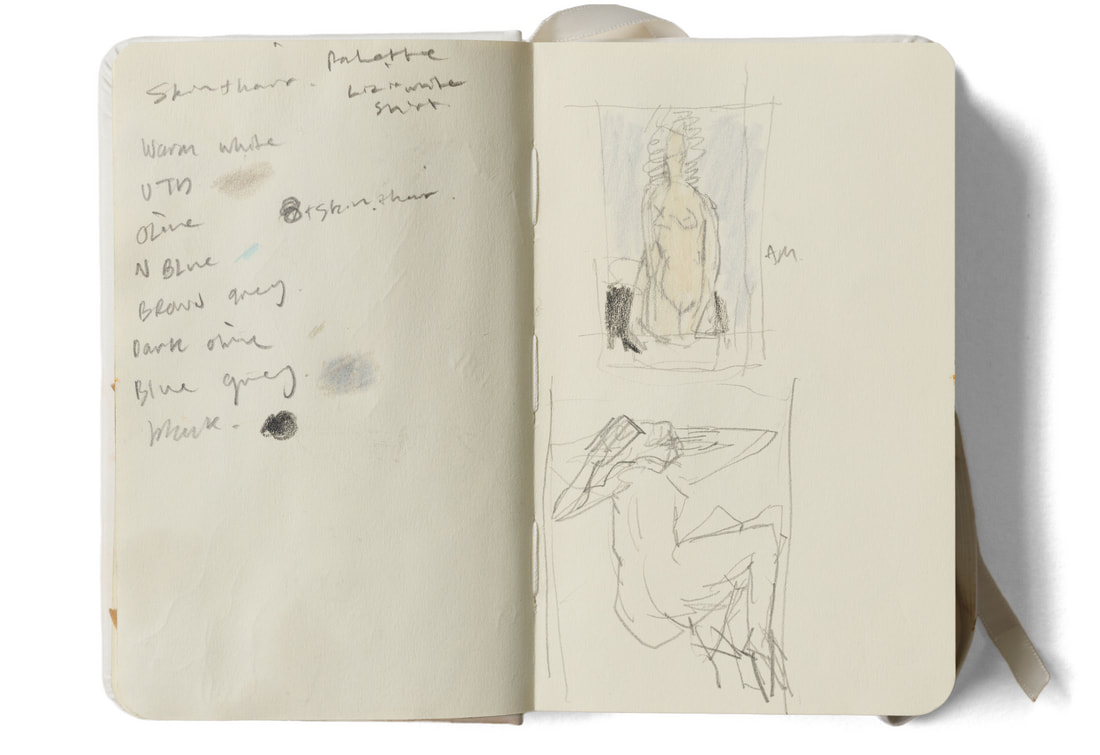 Palette
Skin + hair.
Liz in white
Shirt
Warm white
UTD
Olive
+ Skin + hair.
N Blue
Brown grey.
Dark olive
Blue grey.
black -
AM.